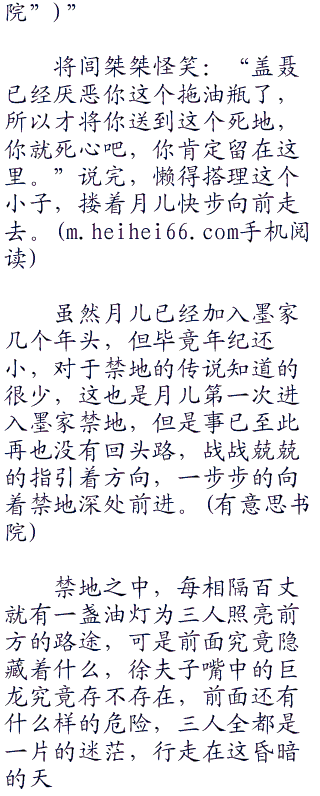 院”)”
将闾桀桀怪笑：“盖聂
已经厌恶你这个拖油瓶了，
所以才将你送到这个死地，
你就死心吧，你肯定留在这
里。”说完，懒得搭理这个
小子，搂着月儿快步向前走
去。(m.heihei66.com手机阅
读)
虽然月儿已经加入墨家
几个年头，但毕竟年纪还
小，对于禁地的传说知道的
很少，这也是月儿第一次进
入墨家禁地，但是事已至此
再也没有回头路，战战兢兢
的指引着方向，一步步的向
着禁地深处前进。(有意思书
院)
禁地之中，每相隔百丈
就有一盏油灯为三人照亮前
方的路途，可是前面究竟隐
藏着什么，徐夫子嘴中的巨
龙究竟存不存在，前面还有
什么样的危险，三人全都是
一片的迷茫，行走在这昏暗
的天